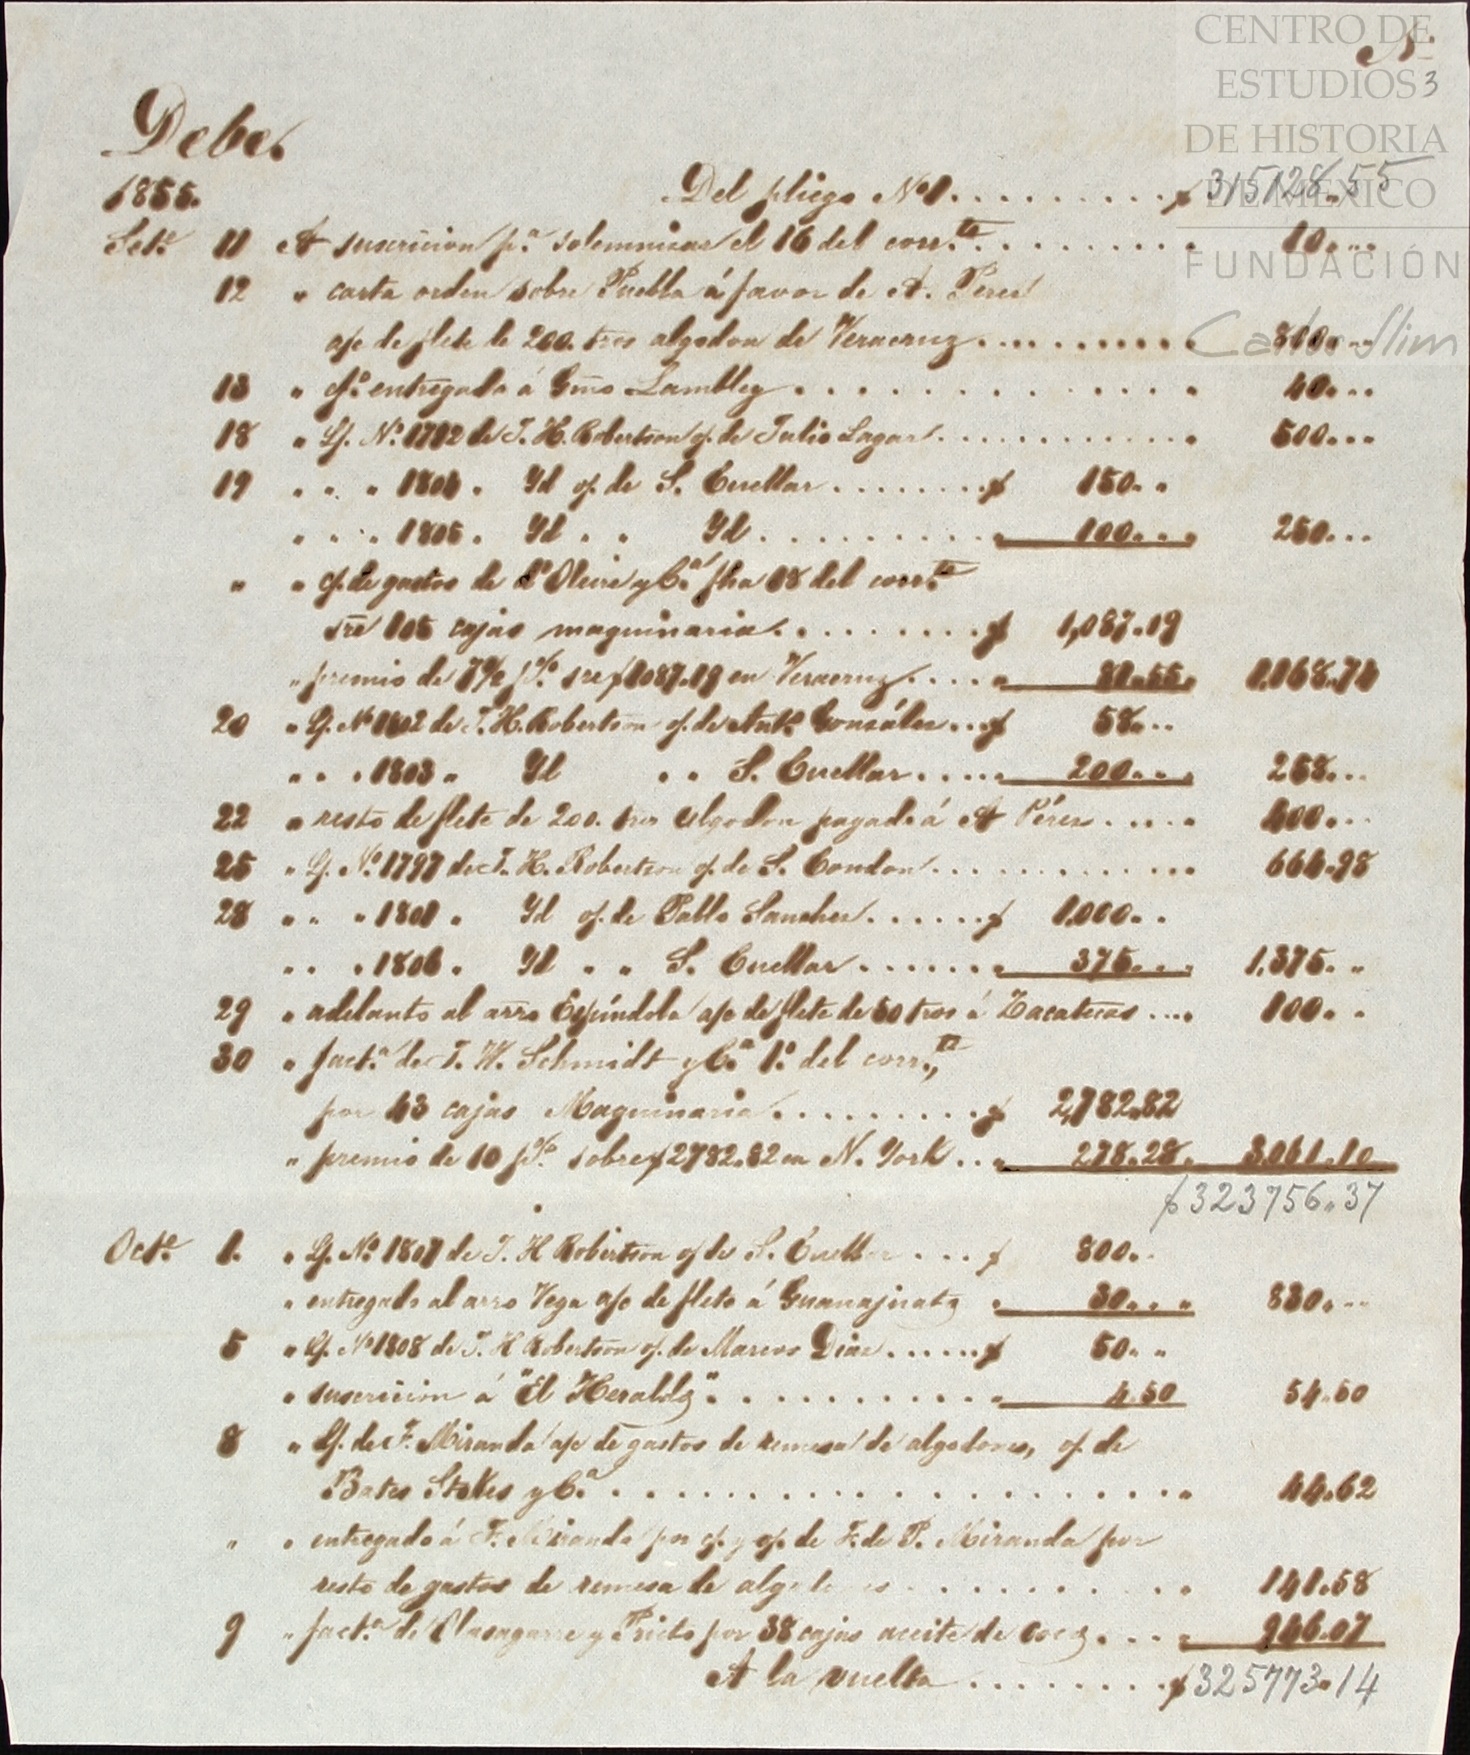 CENTRO DE
ESTUDIOS
DE HISTORIA
DE MÉXICO
FUNDACIÓN
Carlos Slim
Nº
3
Debe.
1855. Del pliego Nº 1. . . . . . . . . $ 315128.55
Sete. 11 A suscricion pª solemnizar el 16 del corrte. . . . . . . . . 10. . .
12 " carta orden sobre Puebla á favor de A. Perez
a/c de flete de 200. tros algodon de Veracruz . . . . . . . . 800. . .
13 " entregada á Gmo Lambley . . . . . . . . . . 40. . .
18 " L/. Nº 1792 de T. H. Robertson o/. de Julio Lagar . . . . . . . . 500. . .
19 " " " 1804 . Yd o/. de S. Cuellar . . . . . . . $ 150. .
" " " 1805 . Yd . . Yd . . . . . . . . . . 100. . . 250. . .
" " c/. de gastos de d'Oleire y Cª fha 18 del corrte
sre 105 cajas maquinaria. . . . . . . . $ 1,087.19
" premio de 7½ p% sre $1087.19 en Veracruz. . . . 81.55. 1,168.74
20 " L/. Nº 1802 de T. H. Robertson o/. de Antº Gonzáles . . . $ 58. . .
" " " 1803 " Yd . . S. Cuellar . . . . . 200. . . 258. . .
22 " resto de flete de 200. tros algodon pagado á A Pérez . . . . . 400. . .
25 " L/. Nº 1797 de T. H. Robertson o/. de S. Condon . . . . . . . . . . 664.98
28 " " " 1801 . Yd o/. de Pablo Sanchez . . . . . . $ 1,000. .
" " " 1806 . Yd . . S. Cuellar . . . . . . . 375. . . 1,375. .
29 " adelanto al arro Espíndola a/c de flete de 50 tros á Zacatecas . . . . 100. .
30 " factª de T. W. Schmidt y Cª 1º del corrte,
por 43 cajas Maquinaria . . . . . . . . . $ 2,782.82
" premio de 10 p% sobre $2782.82 en N. York . . . 278.28. 3,061.10
$323756.37
Octe. 1. " L/. Nº 1807 de T. H Robertson o/ de S. Cuellar . . . $ 800. .
" entregado al arro Vega a/c de flete á Guanajuato . 30. . . 830. . .
5 " L/. Nº 1808 de T. H Robertson o/. de Marcos Diaz . . . . . . $ 50. .
" suscricion á "El Heraldo" . . . . . . . . . . . 4.50 54.50
8 " L/. de F. Miranda a/c de gastos de remesa de algodones, o/. de
Bates Stokes y Cª . . . . . . . . . . . . . . . . . 44.62
" " entregado á F. Miranda por c/. y o/. de F. de P. Miranda por
resto de gastos de remesa de algodones . . . . . . . . . 141.58
9 " factª de Olasagarre y Prieto por 38 cajas aceite de coco . . . . 946.07
A la vuelta . . . . . . . . . $325773.14